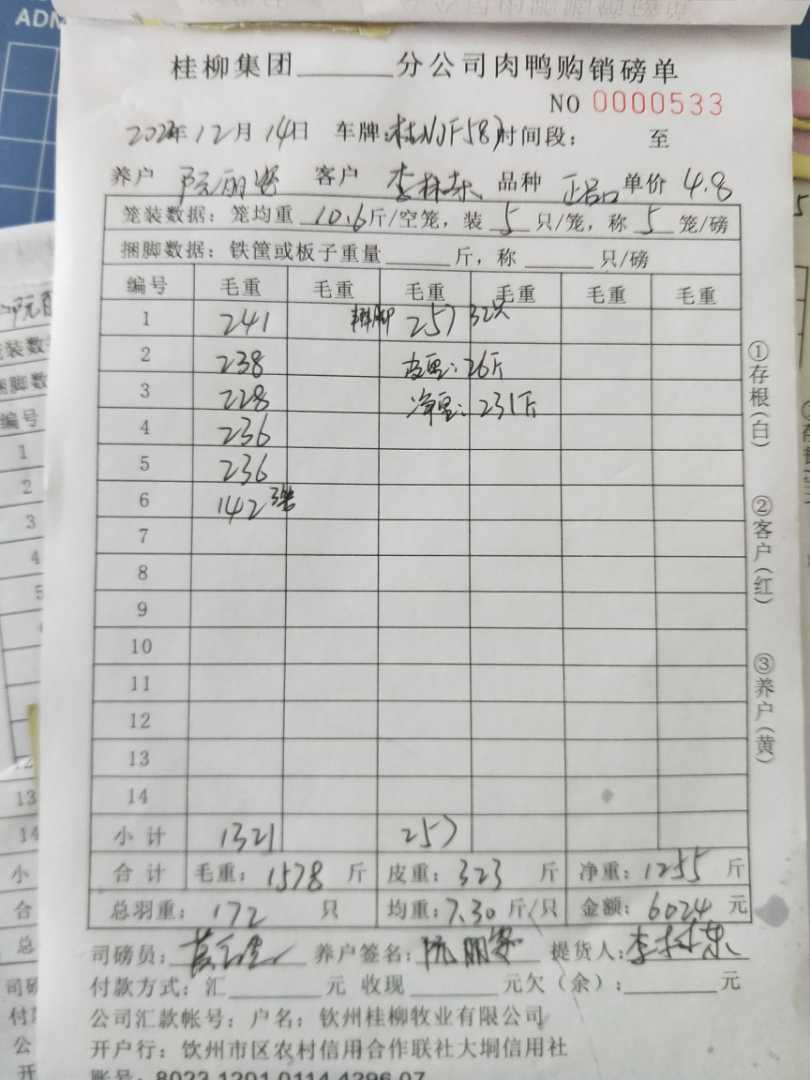 ADM
桂柳集团______分公司肉鸭购销磅单
NO 0000533
2022年12月14日 车牌: 桂NJF587 时间段: 至
养户 阮丽婴 客户 李林东 品种 正品 单价 4.8
笼装数据: 笼均重 10.6 斤/空笼, 装 5 只/笼, 称 5 笼/磅
捆脚数据: 铁筐或板子重量______斤, 称______只/磅
编号 毛重 毛重 毛重 毛重 毛重 毛重
1 241 捆脚 257 32只
2 238 皮重: 26斤
3 228 净重: 231斤
4 236
5 236
6 142 3笼
7
8
9
10
11
12
13
14
小计 1321 257
合计 毛重: 1578 斤 皮重: 323 斤 净重: 1255 斤
总羽重: 172 只 均重: 7.30 斤/只 金额: 6024 元
司磅员: 养户签名: 阮丽婴 提货人: 李林东
付款方式: 汇______元 收现______元欠(余):______元
公司汇款帐号: 户名: 钦州桂柳牧业有限公司
开户行: 钦州市区农村信用合作联社大垌信用社
账号: 8023 1201 0114 4296 07
①存根(白)
②客户(红)
③养户(黄)